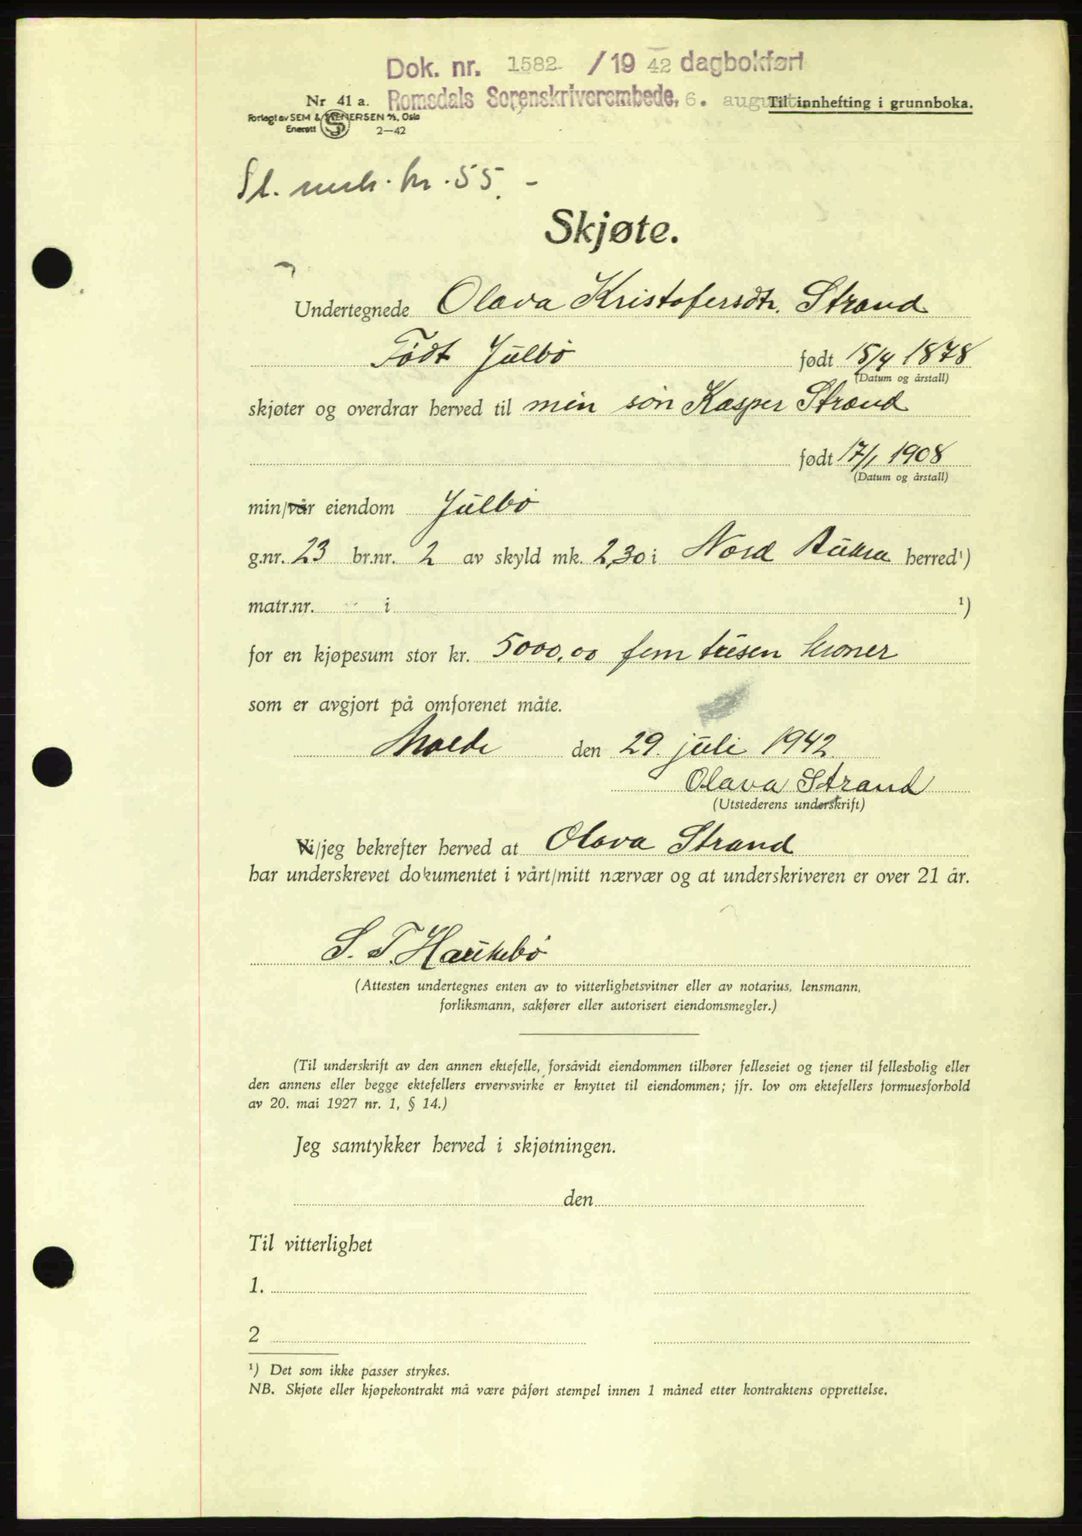 Dok. nr. 1582 / 19 42 dagbokført
Romsdals Sorenskriverembede, 6. august.
Til innhefting i grunnboka.
Nr 41 a.
Forlagt av SEM & STENERSEN A/S, Oslo
Enerett 2—42
St. merk. kr. 55. -
Skjøte.
Undertegnede Olava Kristofersdtr. Strand
Født Julbø født 15/4 1878
(Datum og årstall)
skjøter og overdrar herved til min søn Kasper Strand
født 17/1 1908
(Datum og årstall)
min/vår eiendom Julbø
g.nr. 23 br.nr. 2 av skyld mk. 2,30 i Nord Aukra herred¹)
matr.nr. i ¹)
for en kjøpesum stor kr. 5000,00 fem tusen kroner
som er avgjort på omforenet måte.
Molde den 29. juli 1942
Olava Strand
(Utstederens underskrift)
Vi/jeg bekrefter herved at Olava Strand
har underskrevet dokumentet i vårt/mitt nærvær og at underskriveren er over 21 år.
S. T. Haukebø
(Attesten undertegnes enten av to vitterlighetsvitner eller av notarius, lensmann,
forliksmann, sakfører eller autorisert eiendomsmegler.)
(Til underskrift av den annen ektefelle, forsåvidt eiendommen tilhører felleseiet og tjener til fellesbolig eller
den annens eller begge ektefellers ervervsvirke er knyttet til eiendommen; jfr. lov om ektefellers formuesforhold
av 20. mai 1927 nr. 1, § 14.)
Jeg samtykker herved i skjøtningen.
den
Til vitterlighet
1.
2
¹) Det som ikke passer strykes.
NB. Skjøte eller kjøpekontrakt må være påført stempel innen 1 måned etter kontraktens opprettelse.